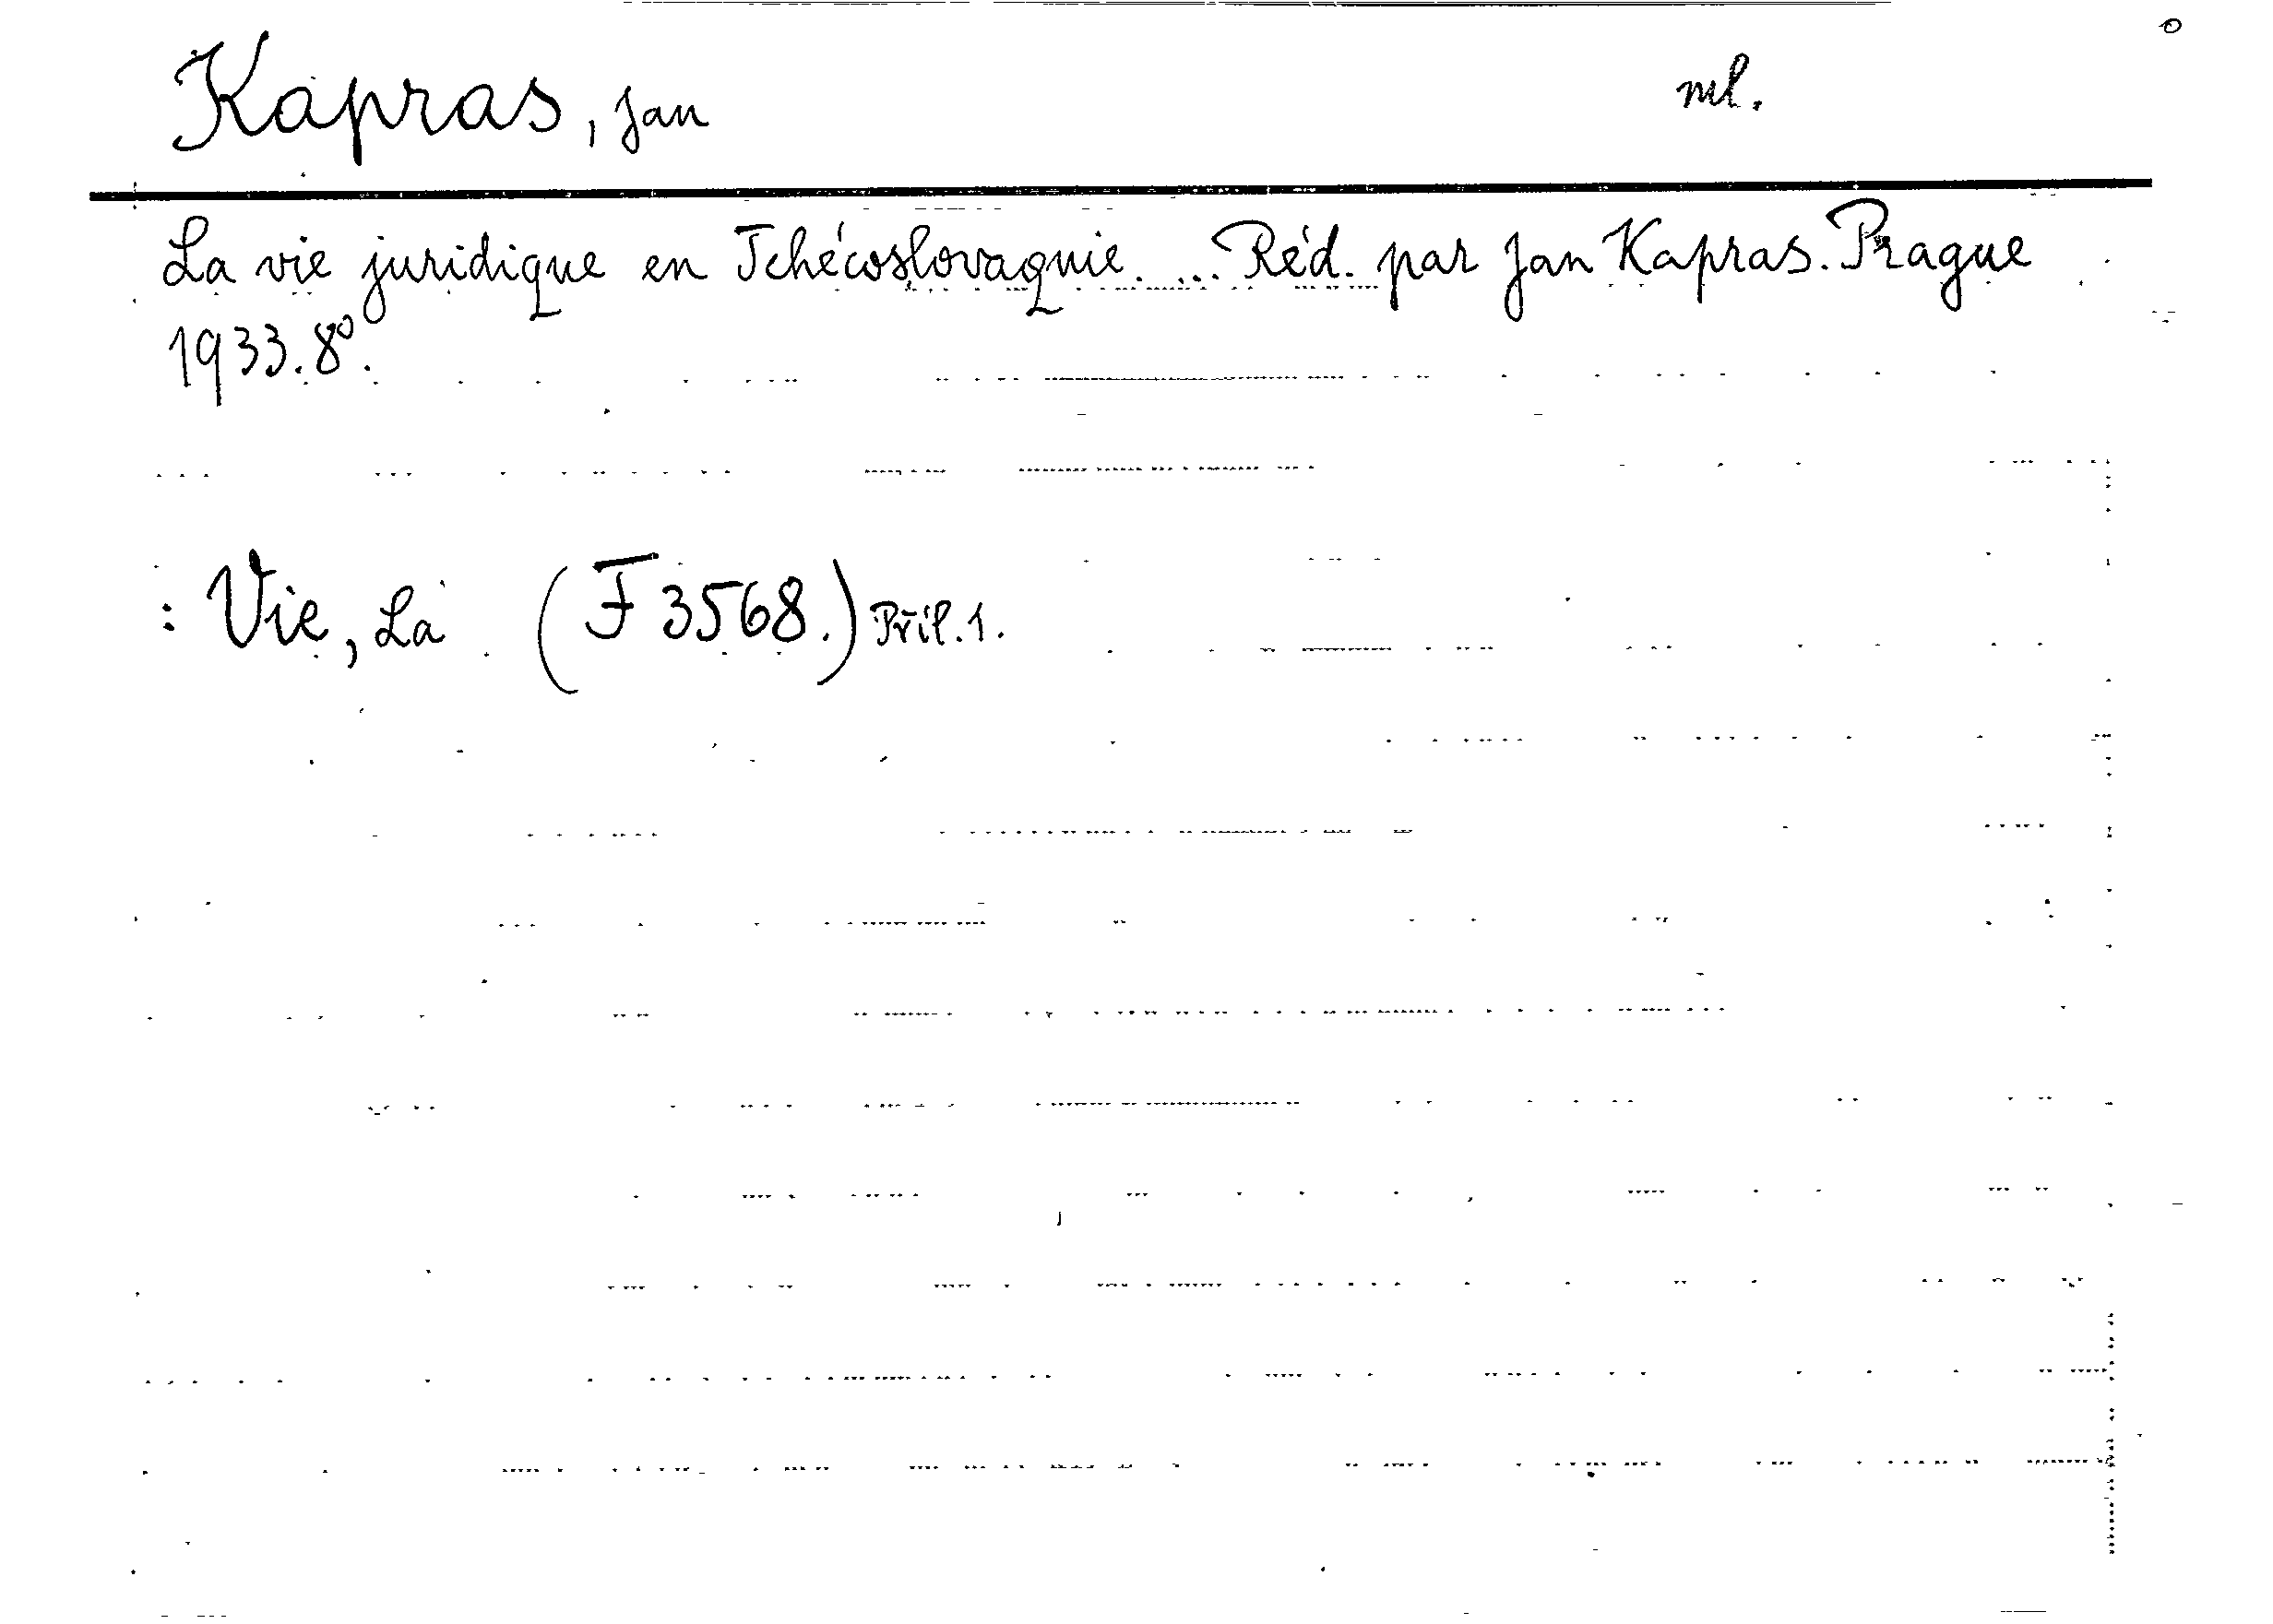 Kapras, Jan ml.
La vie juridique en Tchécoslovaquie. ... Réd. par Jan Kapras. Prague
1933. 8°.
: Vie, La (F 3568.) Příl. 1.